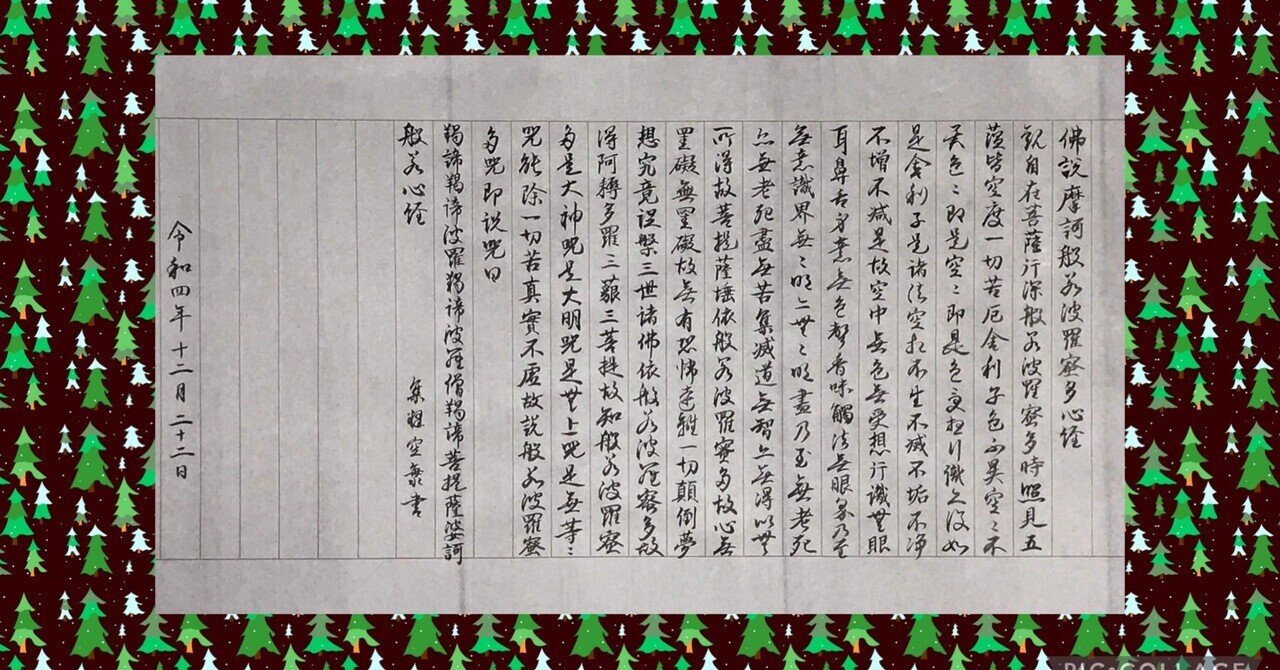 佛説摩訶般若波羅蜜多心経
観自在菩薩行深般若波羅蜜多時照見五
蘊皆空度一切苦厄舎利子色不異空〻不
異色〻即是空〻即是色受想行識亦復如
是舎利子是諸法空相不生不滅不垢不浄
不増不減是故空中無色無受想行識無眼
耳鼻舌身意無色聲香味觸法無眼界乃至
無意識界無〻明亦無〻明盡乃至無老死
亦無老死盡無苦集滅道無智亦無得以無
所得故菩提薩埵依般若波羅蜜多故心無
罣礙無罣礙故無有恐怖遠離一切顛倒夢
想究竟涅槃三世諸佛依般若波羅蜜多故
得阿耨多羅三藐三菩提故知般若波羅蜜
多是大神呪是大明呪是無上呪是無等〻
呪能除一切苦真實不虚故説般若波羅蜜
多呪即説呪曰
羯諦羯諦波羅羯諦波羅僧羯諦菩提薩婆訶
般若心経
空 書
令和四年十二月二十二日